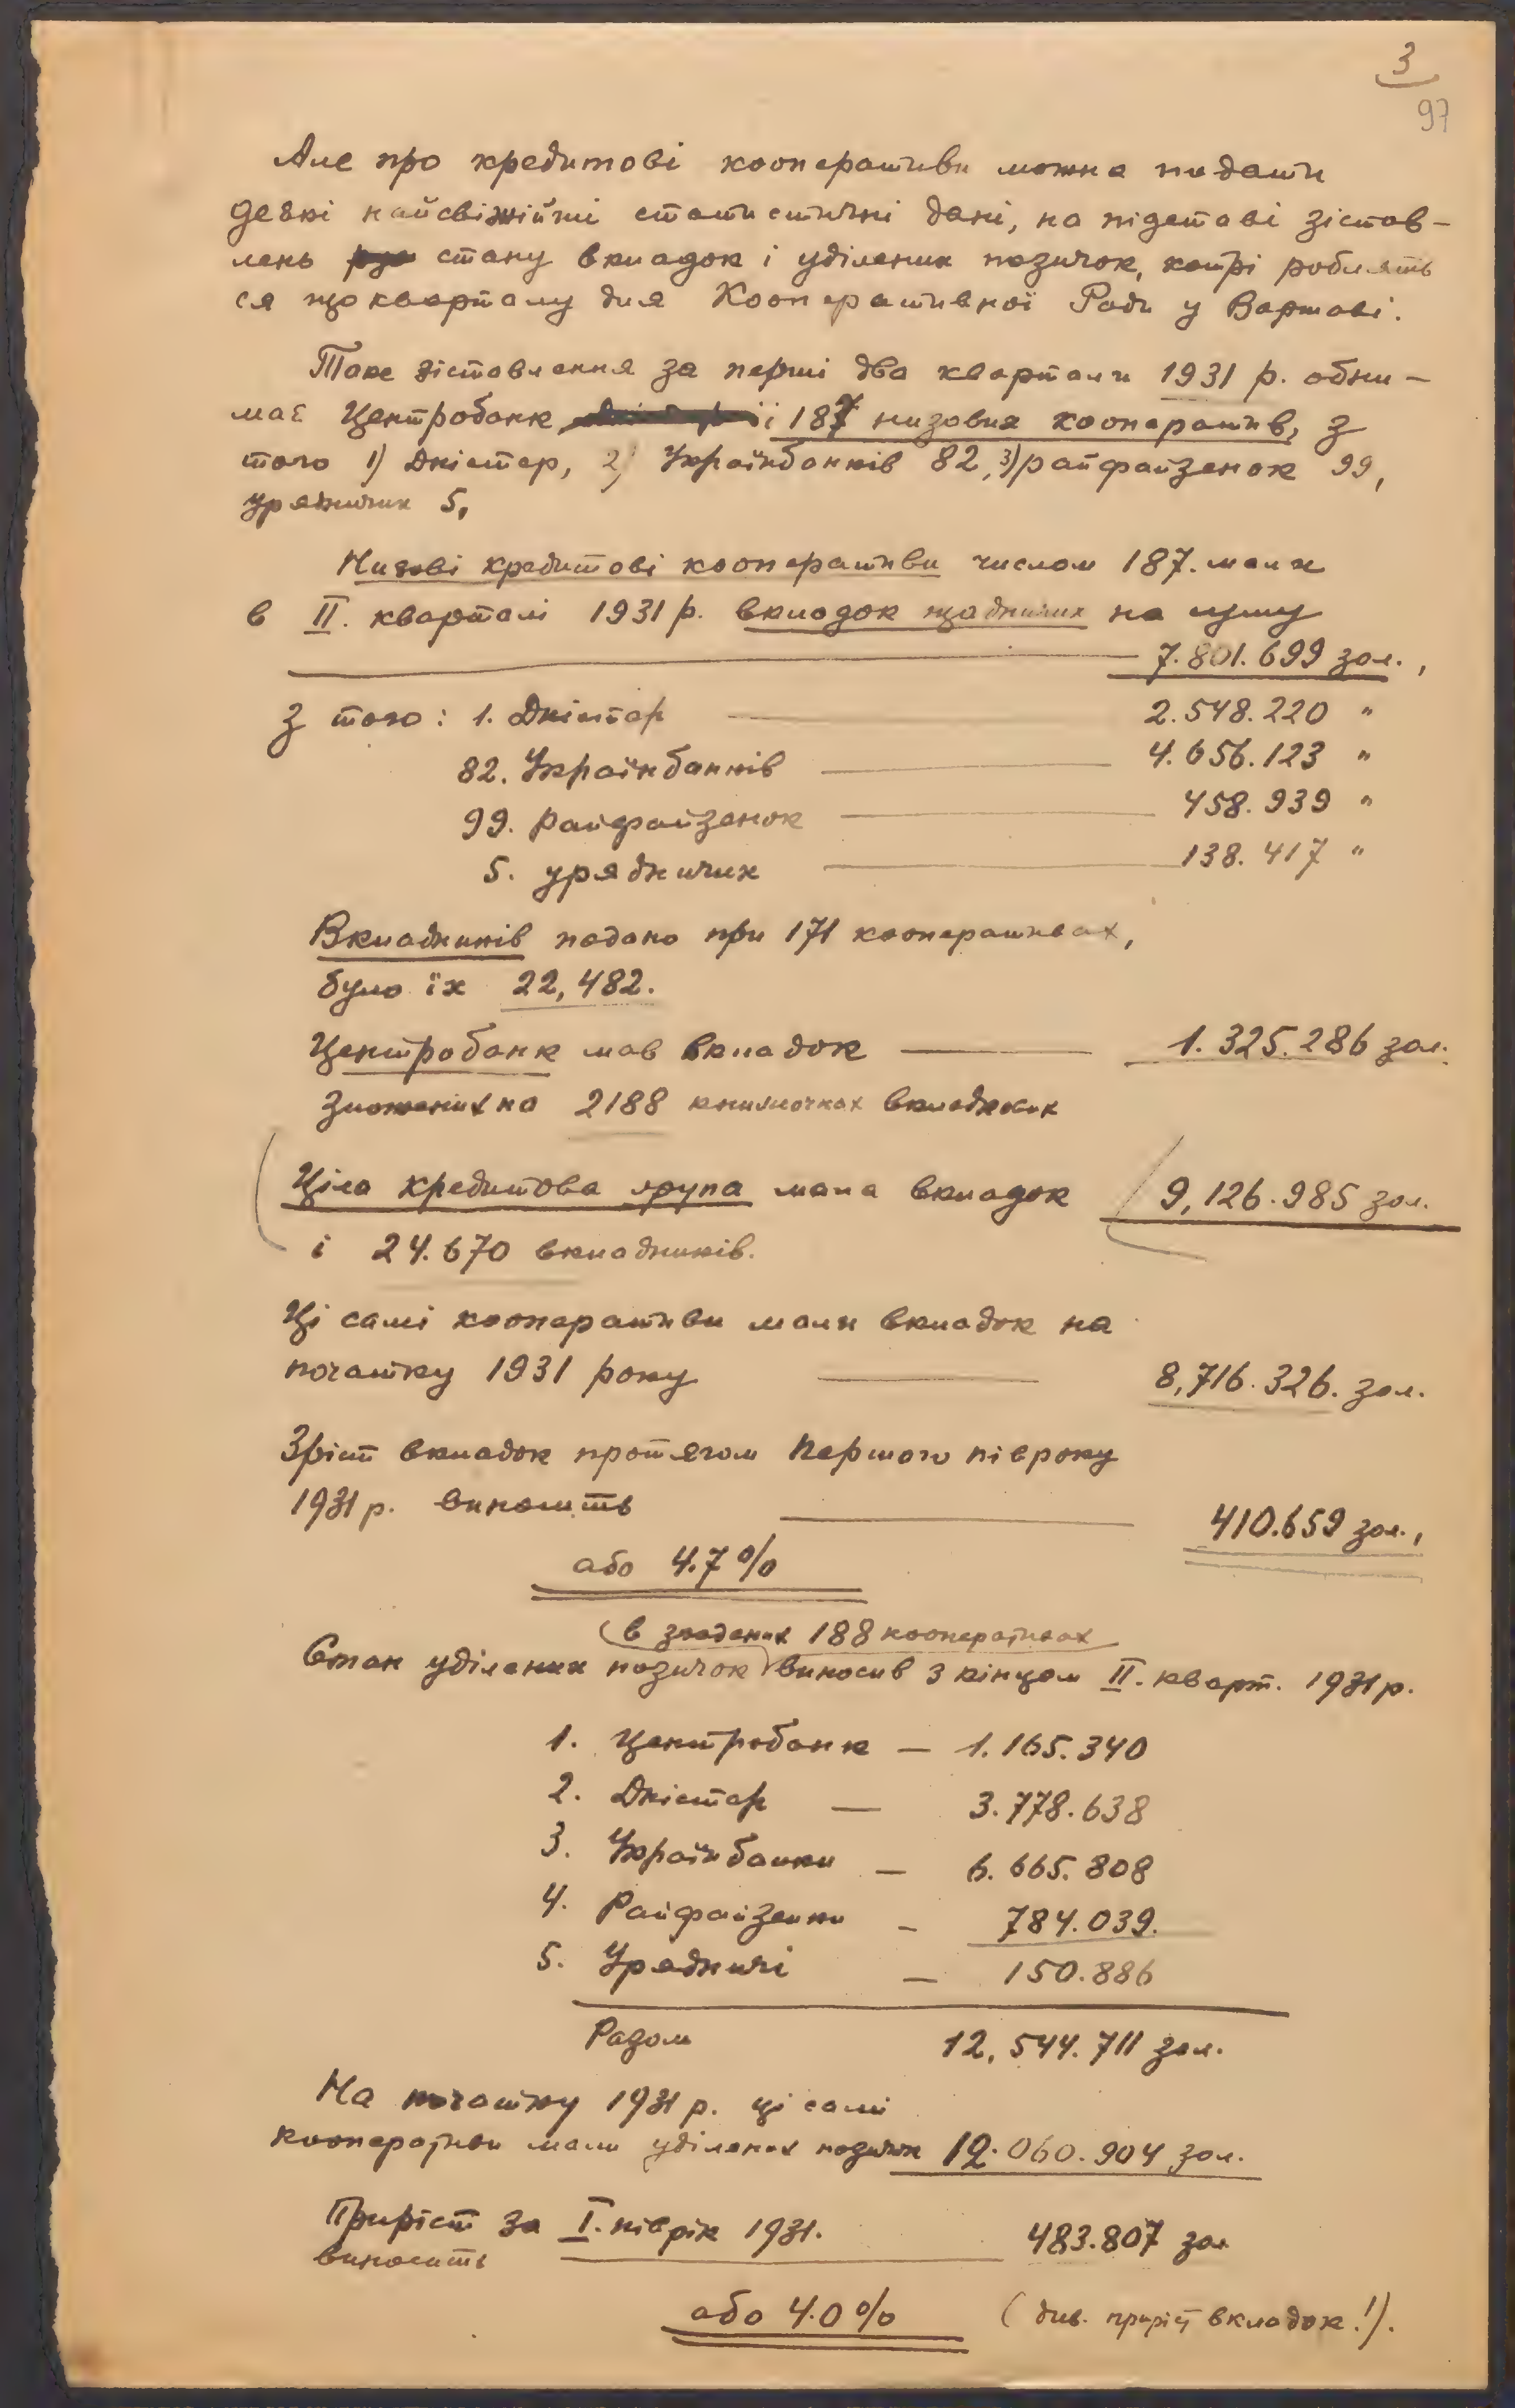 3
97
Але про кредитові кооперативи можна подати
деякі найсвіжійші статистичні дані, на підставі зістав-
лень стану вкладок і уділених позичок, котрі роблять
ся що кварталу для Кооперативної Ради у Варшаві.
Таке зіставлення за перші два квартали 1931 р. обни-
має Центробанк і 187 низових кооператив, з
того 1) Дністер, 2) Українбанків 82, 3) райфайзенок 99,
урядничих 5,
Низові кредитові кооперативи числом 187. мали
в II. кварталі 1931 р. вкладок щадничих на суму
7.801.699 зол.,
з того: 1. Дністер — 2.548.220 "
82. Українбанків — 4.656.123 "
99. райфайзенок — 458.939 "
5. урядничих — 138.417 "
Вкладників подано при 171 кооперативах,
було їх 22,482.
Центробанк мав вкладок — 1.325.286 зол.
зложених на 2188 книжочках вкладкових
Ціла кредитова група мала вкладок 9,126.985 зол.
і 24.670 вкладників.
Ці самі кооперативи мали вкладок на
початку 1931 року — 8,716.326. зол.
Зріст вкладок протягом першого півроку
1931 р. виносить — 410.659 зол.,
або 4.7 %
в згаданих 188 кооперативах
Стан уділених позичок виносив з кінцем II. кварт. 1931 р.
1. Центробанк — 1.165.340
2. Дністер — 3.778.638
3. Українбанки — 6.665.808
4. Райфайзенки — 784.039.
5. Урядничі — 150.886
Разом 12,544.711 зол.
На початку 1931 р. ці самі
кооперативи мали уділених позичок 12.060.904 зол.
Приріст за I. піврік 1931. 483.807 зол
виносить
або 4.0 % (див. приріст вкладок!).